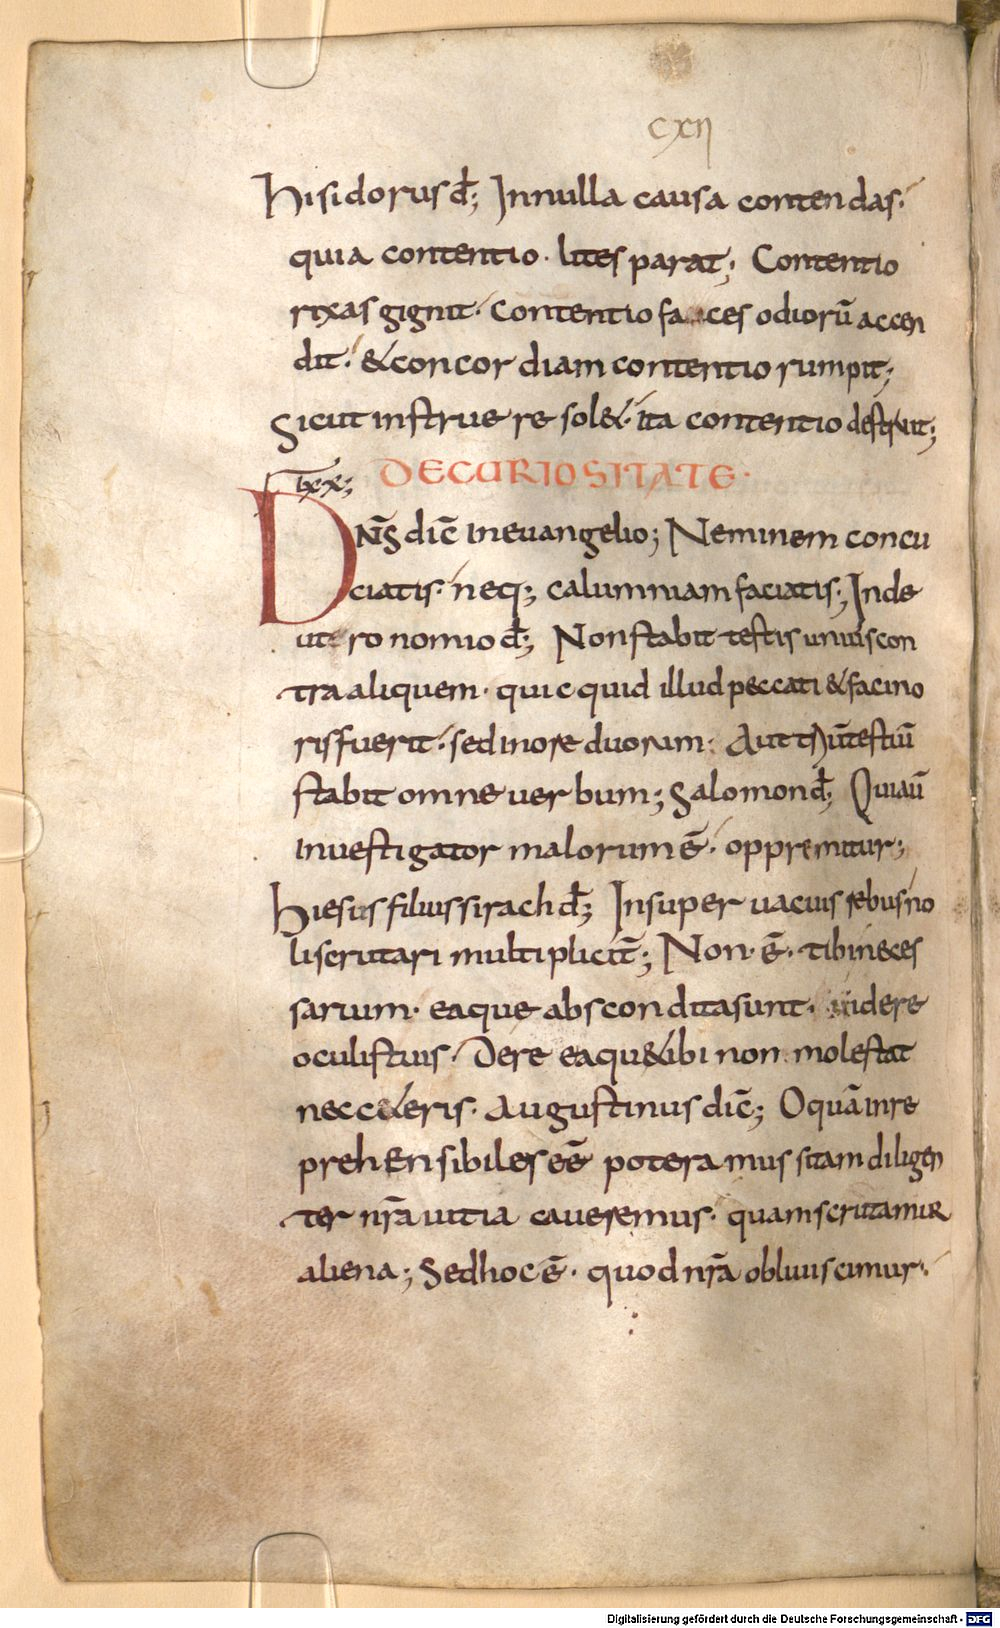 cxii
hisidorus d̄; In nulla causa contendas·
quia contentio· lites parat; Contentio
rixas gignit· contentio faces odiorū accen
dit· & concordiam contentio rumpit;
sicut instruere sol&· ita contentio destruit;
lxx; DE CURIOSITATE·
DN̄S dic̄ in euangelio; Neminem concu
ciatis· neq; calumniam faciatis·; In de
utero nomio d̄; Non stabit testis unus con
tra aliquem· quicquid illud peccati & facino
ris fuerit· sed in ore duorum· Aut triū testiū
stabit omne uerbum; Salomon d̄; Qui aū
inuestigator malorum ē· opprimitur;
hiesus filius sirach d̄; In superuacuis rebus no
li scrutari multiplicit̄; Non· ē· tibi neces
sarium· ea que abscondita sunt· uidere
oculis tuis· De re ea qu& ibi non molestat
ne cc&eris· Augustinus dic̄; O quā inre
prehensibiles eē poteramus si tam diligen
ter nr̄a uitia caueremus· quam scrutamur
aliena; Sed hoc ē· quod nr̄a obliuiscimur·
Digitalisierung gefördert durch die Deutsche Forschungsgemeinschaft - DFG